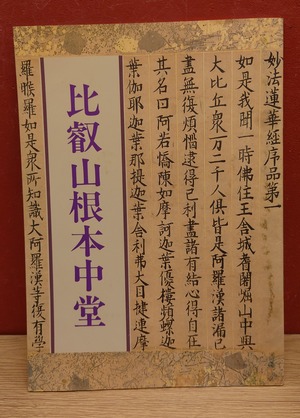 妙法蓮華經序品第一
如是我聞一時佛住王舍城耆闍崛山中與
大比丘衆一万二千人俱皆是阿羅漢諸漏已
盡無復煩惱逮得己利盡諸有結心得自在
其名曰阿若憍陳如摩訶迦葉優樓頻螺迦
葉伽耶迦葉那提迦葉舍利弗大目揵連摩
比叡山根本中堂
羅睺羅如是衆所知識大阿羅漢等復有學